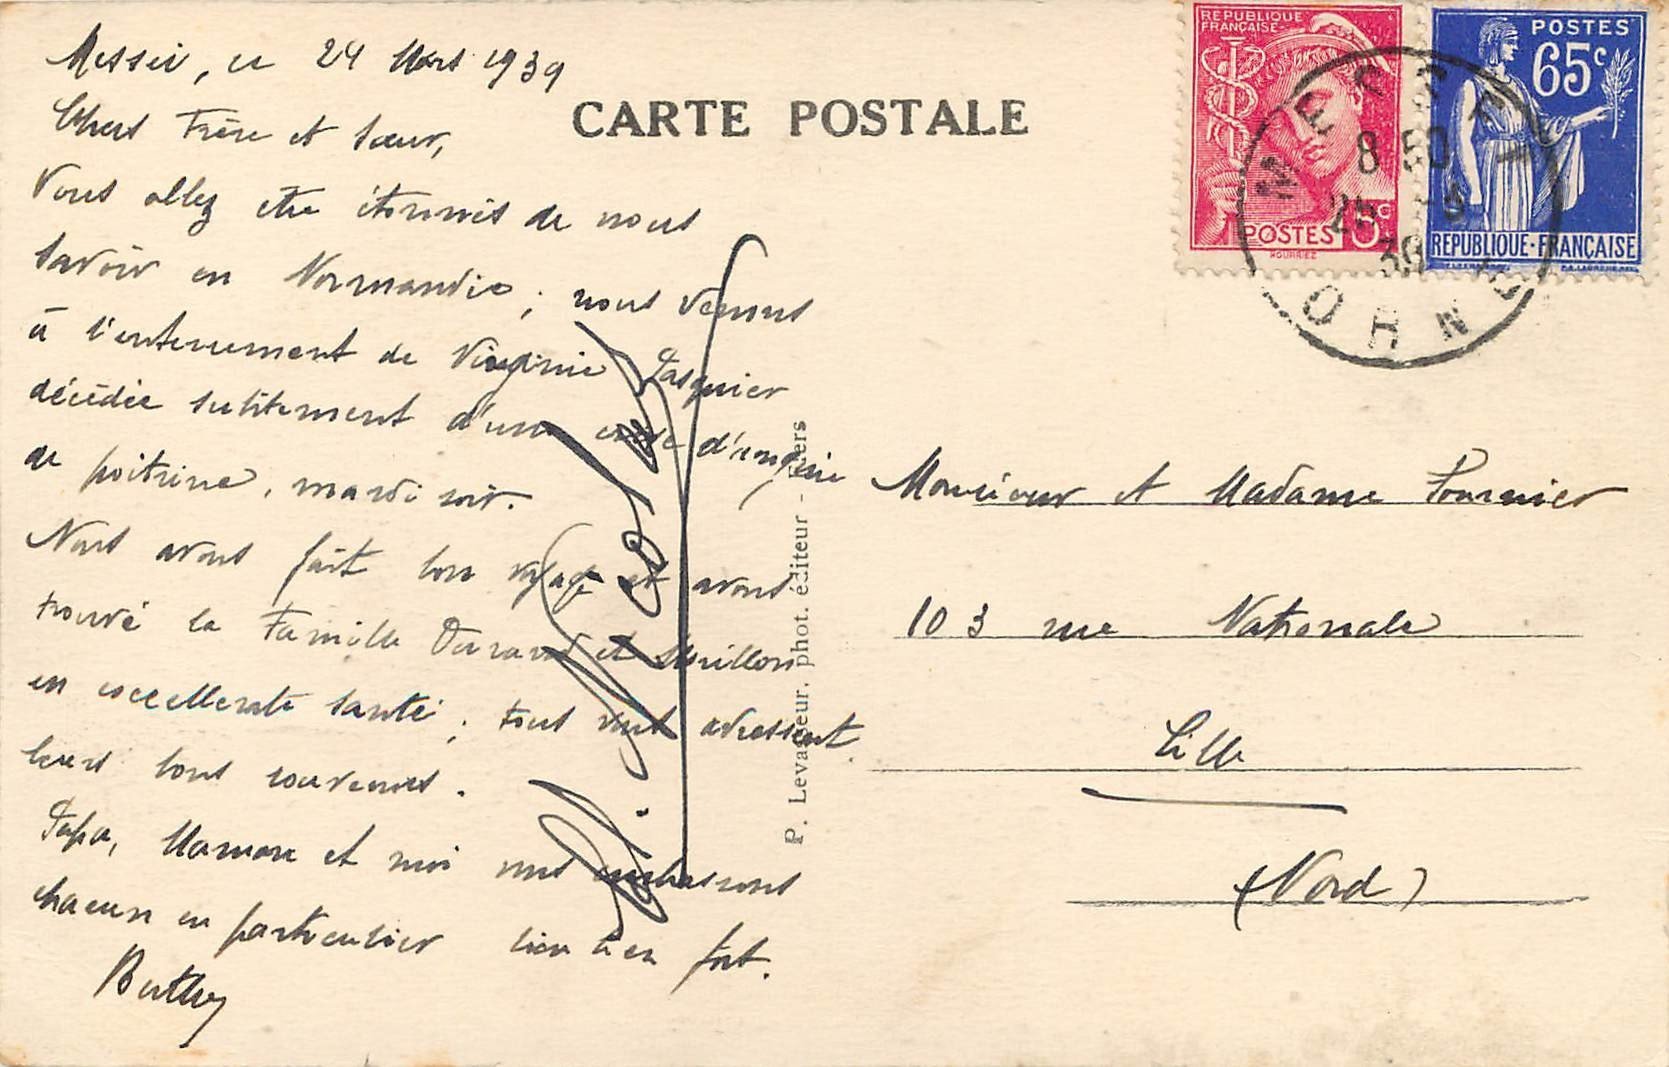 Messei, ce 24 Mars 1939
CARTE POSTALE
Chers Frère et Sœur,
Vous allez être étonnés de nous
savoir en Normandie ; nous venons
à l'enterrement de Virginie Pasquier
décédée subitement d'une crise d'angine
de poitrine, mardi soir.
Nous avons fait bon voyage et avons
trouvé la Famille Durand et
en excellente santé ; tous vous adressent
leurs bons souvenirs.
Papa, Maman et moi vous embrassons
chacun en particulier bien bien fort.
Berthe
P. Levasseur, phot. éditeur - Flers
Monsieur et Madame Fournier
103 rue Nationale
Lille
(Nord)
REPUBLIQUE
FRANÇAISE
POSTES 5c
POSTES
65c
REPUBLIQUE-FRANÇAISE
MESSEI
8 50
25
39
ORNE